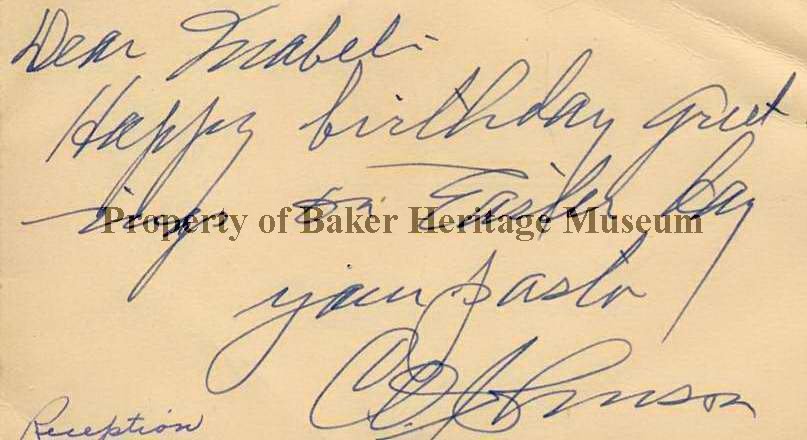 Dear Mabel:-
Happy birthday greet
ings on Easter Day
Property of Baker Heritage Museum
your pastor
C D Johnson
Reception